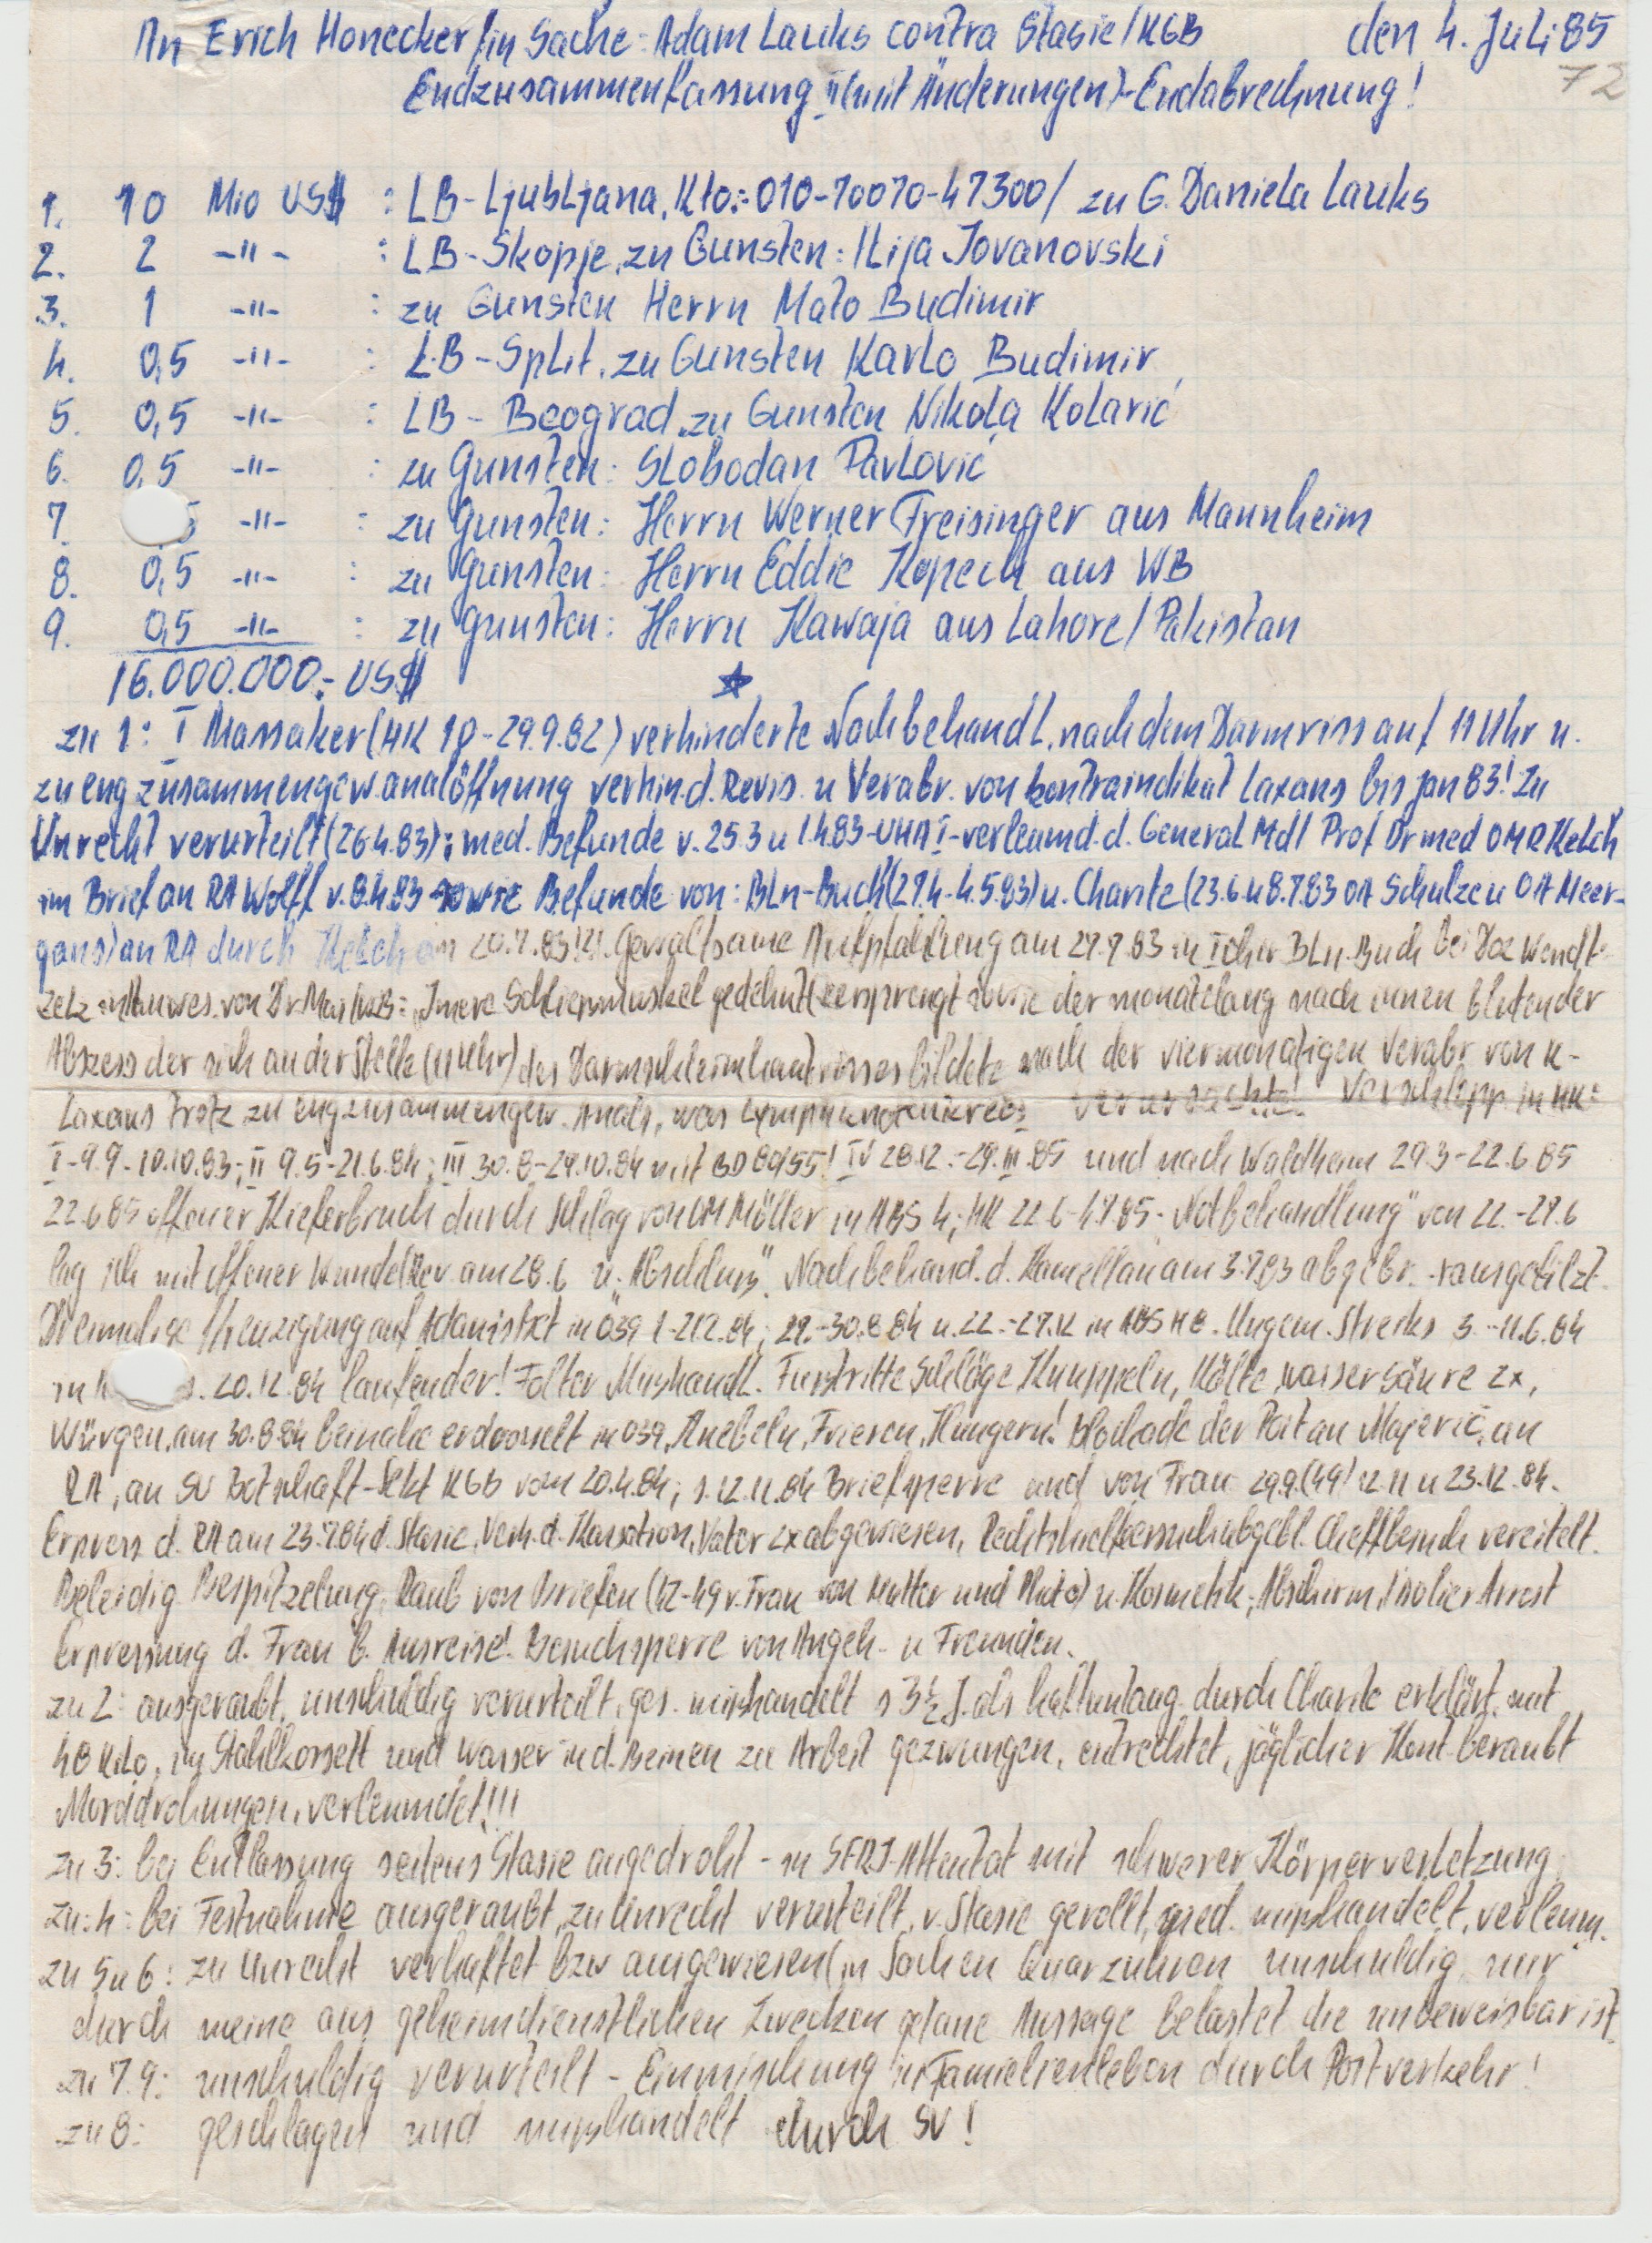 An Erich Honecker/in Sache: Adam Lauks contra Stasie/KGB den 4. Juli 85
72
Endzusammenfassung II (mit Änderungen)-Endabrechnung!
1. 10 Mio US$ : LB-Ljubljana, Kto:-010-70070-47300/ zu G. Daniela Lauks
2. 2 -"- : LB-Skopje, zu Gunsten: Ilija Jovanovski
3. 1 -"- : zu Gunsten Herrn Mato Budimir
4. 0,5 -"- : LB-Split, zu Gunsten Karlo Budimir
5. 0,5 -"- : LB-Beograd, zu Gunsten Nikola Kolarić
6. 0,5 -"- : zu Gunsten: Slobodan Pavlović
7. 5 -"- : zu Gunsten: Herrn Werner Freisinger aus Mannheim
8. 0,5 -"- : zu Gunsten: Herrn Eddie Kopech aus WB
9. 0,5 -"- : zu Gunsten: Herrn Kawaja aus Lahore/Pakistan
16.000.000.- US$
zu 1: I Massaker (HK 10-29.9.82) verhinderte Nachbehandl. nach dem Darmriss auf 11 Uhr u.
zu eng zusammengew. analöffnung verhin.d. Revis. u Verabr. von kontraindikat Laxans bis jan 83! Zu
Unrecht verurteilt (26.4.83); med. Befunde v. 25.3 u 1.4.83-UHA I-verleamd. d. General MdI Prof Dr med OMR Kelch
im Brief an RA Wolff v. 8.4.83 sowie Befunde von: Bln-Buch (27.4-4.5.83) u. Charite (23.6. u 8.7.83 OA Schulze u OA Meer-
gans) an RA durch Kelch am 20.7.83!2!. Gewaltsame Aufpfählung am 27.7.83 in Bln. Buch bei Doz Wendt
: Innere Schliessmuskel gedehnt zersprengt sowie der monatelang nach innen blutender
Abszess der sich an der Stelle (11 Uhr) des Darmschleimhautrisses bildete nach der viermonatigen Verabr von K-
Laxans trotz zu eng zusammengew. Anal, was verursachte! Verschlepp. in HK:
I-9.9-10.10.83-; II 9.5-21.6.84; III 30.8-29.10.84 mit BD 80/55! IV 28.12.-29.III.85 und nach Waldheim 29.3-22.6.85
22.6.85 offener Kieferbruch durch Schlag von OM Möller in ABS 4; HK 22.6-4.7.85; "Notbehandlung" von 22.-27.6
lag ich mit offener Wunde am 28.6 u. "Abschluss". Nachbehand. d. am 3.7.83 abgebr. -rausgefilzt.
Dreimalige Kreuzigung auf Adamistat in Ö39 1-2.12.84; 29.-30.8.84 u. 22.-27.12 in ABS HB. Ungem. Streiks 3.-11.6.84
20.12.84 laufender! Folter Misshandl. Fusstritte Schläge Knuppeln, Kälte, wasser säure 2x,
Würgen, am 30.8.84 beinahe erdrosselt in 039, Knebeln, Frieren, Hungern! Blockade der Post an Majerič, an
RA, an SV Botschaft-Sekt KGB vom 20.4.84; s. 12.11.84 Briefsperre und von Frau 29.9.(49) 12.11 u 23.12.84.
Erpress. d. RA am 23.7.84 d. Stasie, Verh. d. Kassation, Vater 2x abgewiesen, abgebl. vereitelt.
Beleidig. Bespitzelung, Raub von Briefen (42-49 v. Frau von Mutter und Photo) u. Kosmetik; Abschirm, Isolier Arrest
Erpressung d. Frau b. Ausreise! Besuchsperre von Angeh. u Freunden.
zu 2: ausgeraubt, unschuldig verurteilt, ges. misshandelt s 3½ J. als haftuntaug. durch Charite erklärt, mit
48 Kilo, im Stahlkorsett und wasser in d. Beinen zu Arbeit gezwungen, entrechtet, jäglicher Kont beraubt
Morddrohungen, verleumdet!!!
zu 3: bei Entlassung seitens Stasie angedroht - in SFRJ-Attentat mit schwerer Körperverletzung
zu:4: bei Festnahme ausgeraubt, zu Unrecht verurteilt, v. Stasie gerollt, med. misshandelt, verleum.
zu 5 u 6: zu Unrecht verhaftet bzw ausgewiesen (in Sachen Quarzuhren unschuldig nur
durch meine aus geheimdienstlichen Zwecken getane Aussage belastet die unbeweisbar ist
zu 7.9: unschuldig verurteilt - Einmischung in Familienleben durch Postverkehr!
zu 8: geschlagen und misshandelt durch SV!